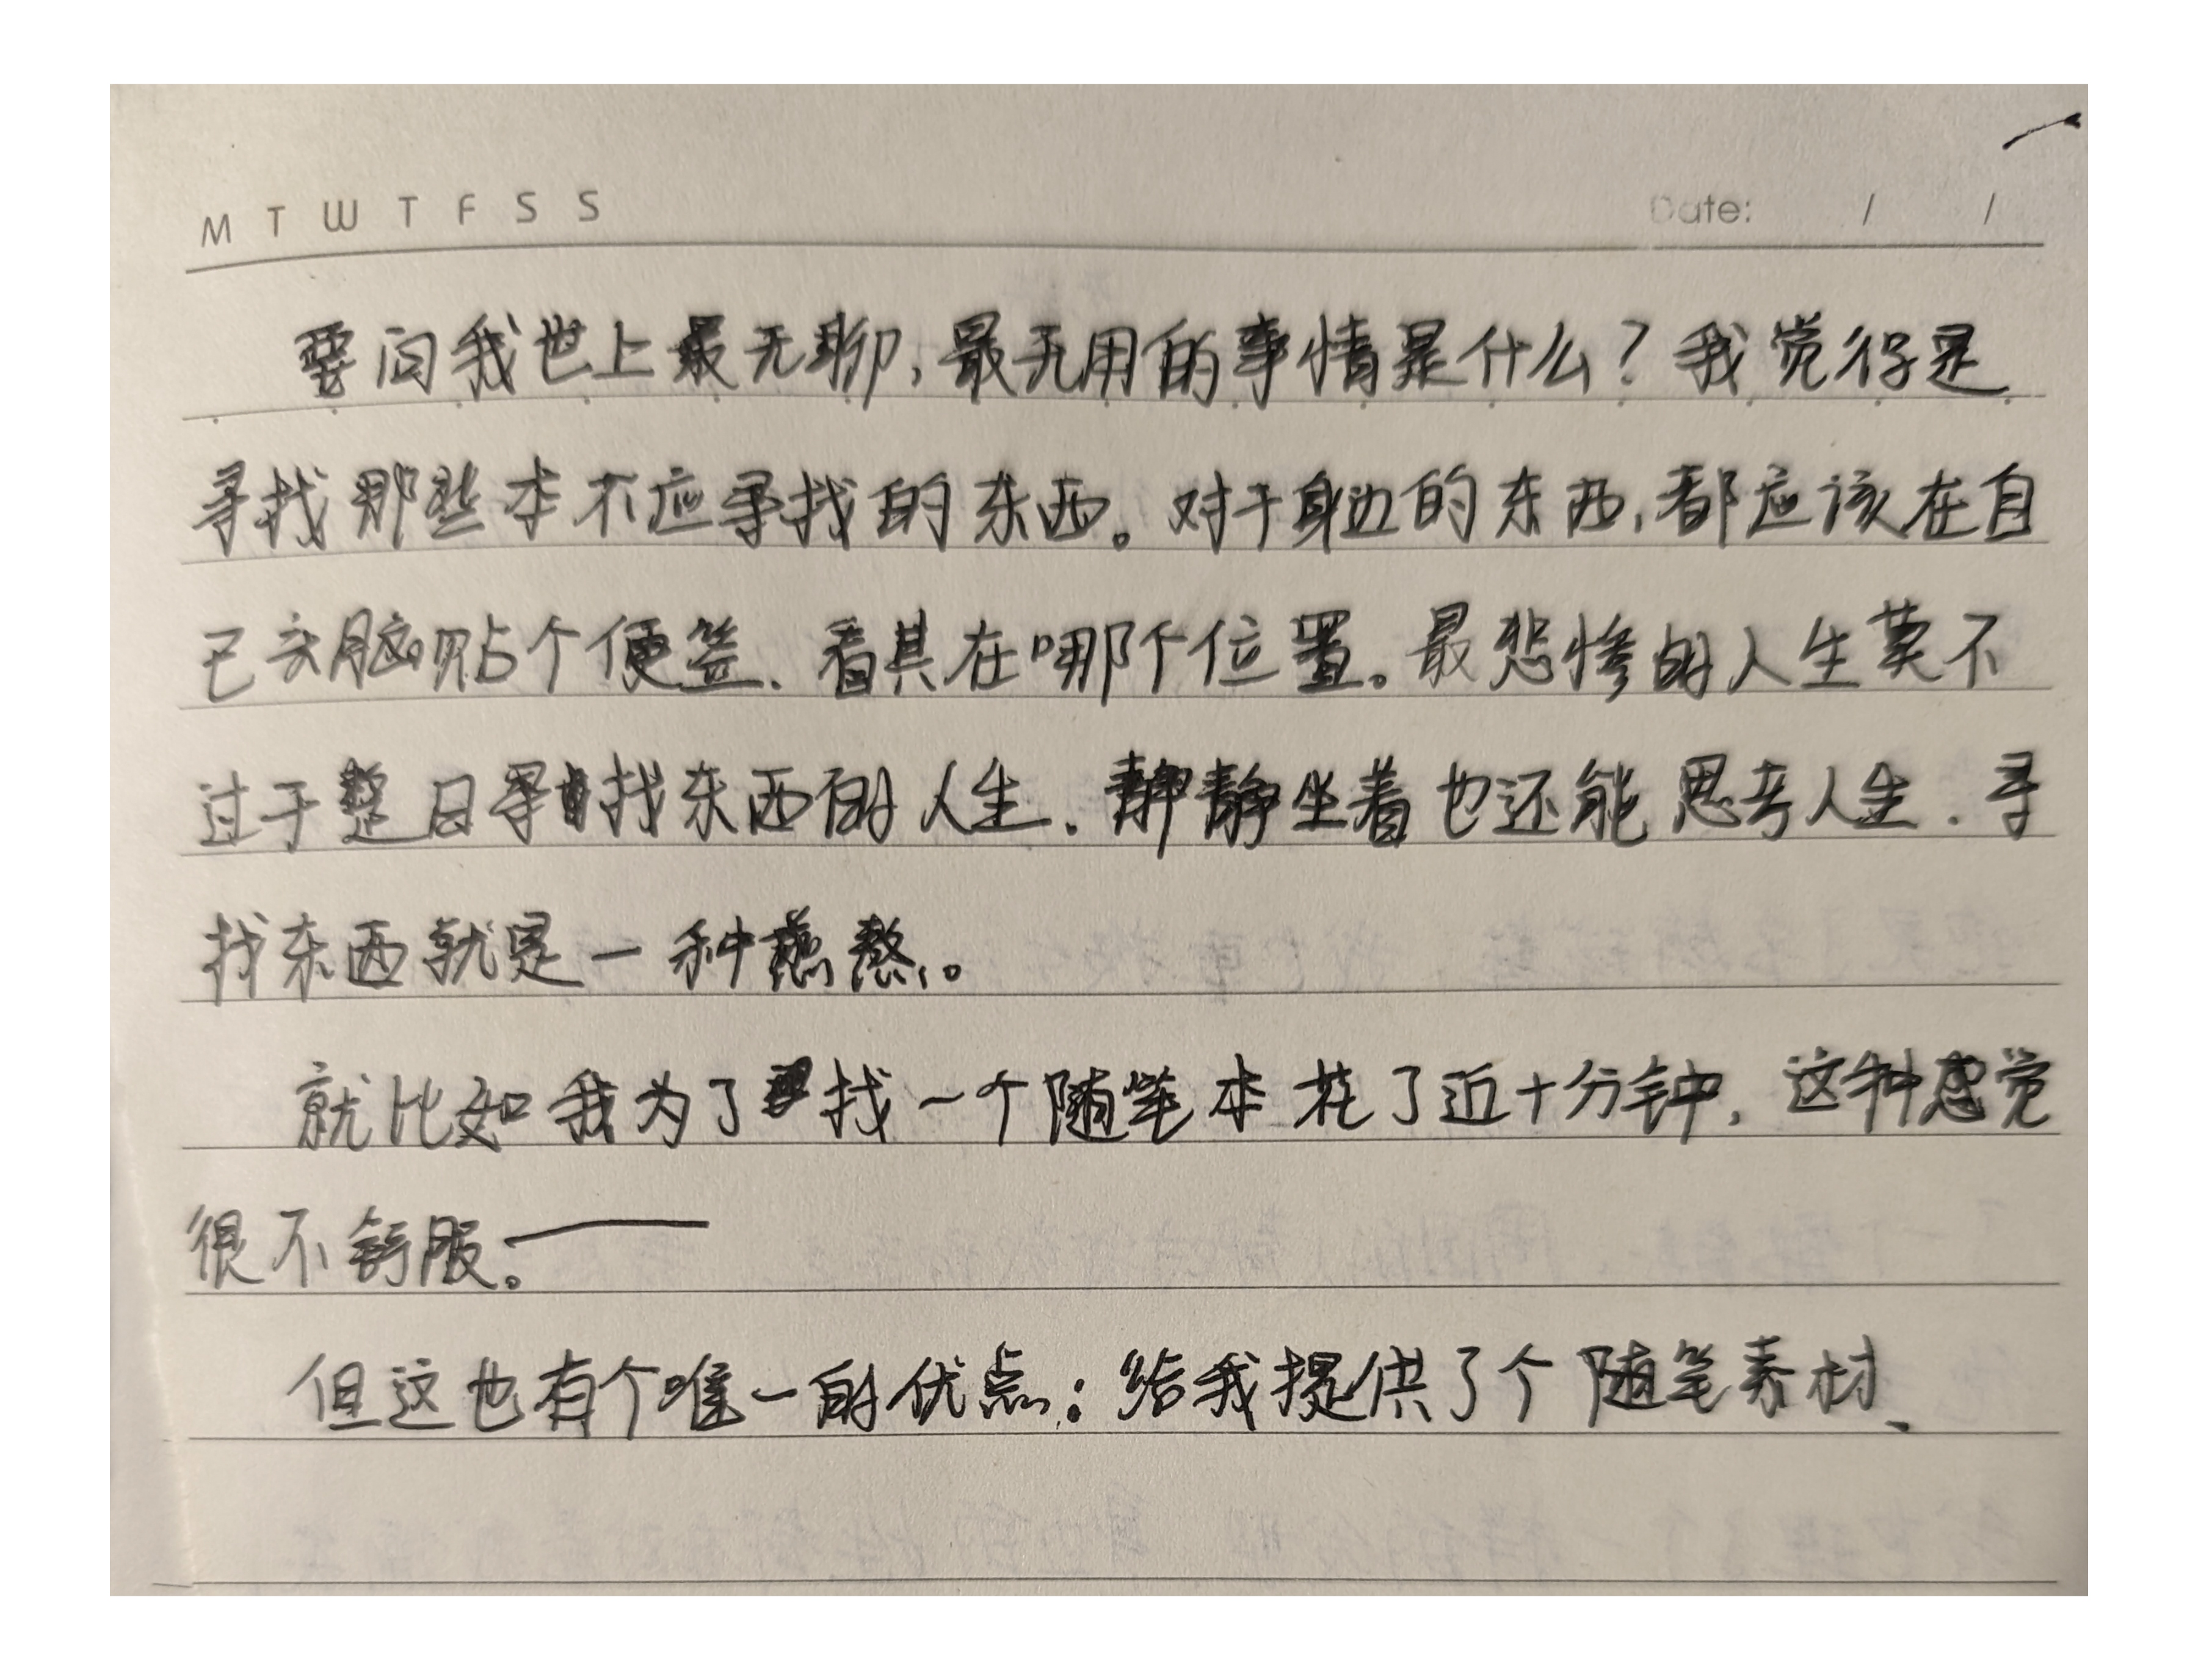 M T W T F S S
Date: / /
要问我世上最无聊,最无用的事情是什么?我觉得是
寻找那些本不应寻找的东西。对于身边的东西,都应该在自
己头脑贴个便签.看其在哪个位置。最悲惨的人生莫不
过于整日寻找东西的人生.静静坐着也还能思考人生.寻
找东西就是一种煎熬。
就比如我为了找一个随笔本花了近十分钟,这种感觉
很不舒服。
但这也有个唯一的优点:给我提供了个随笔素材、